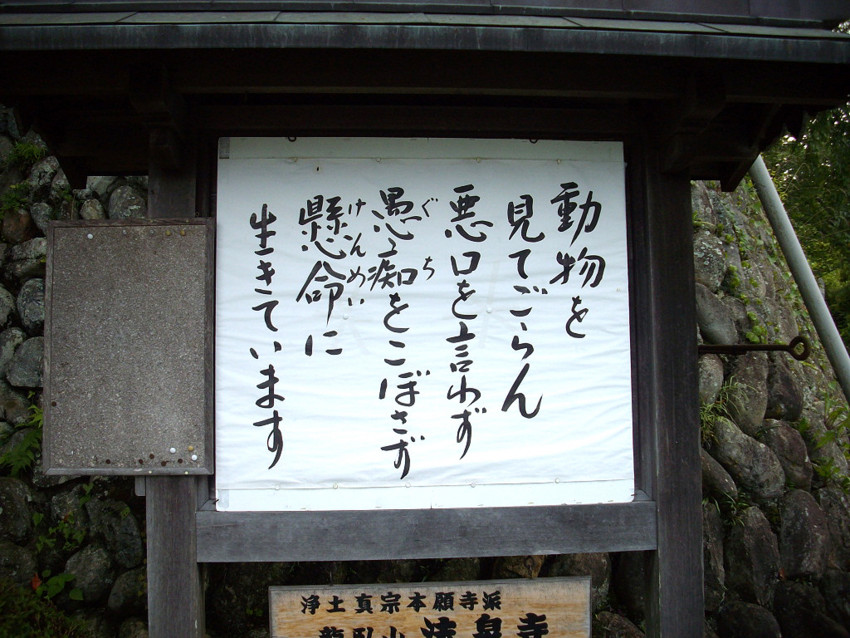 動物を
見てごらん
悪口を言わず
愚痴をこぼさず
ぐち
懸命に
けんめい
生きています
浄土真宗本願寺派
龍臥山 法泉寺